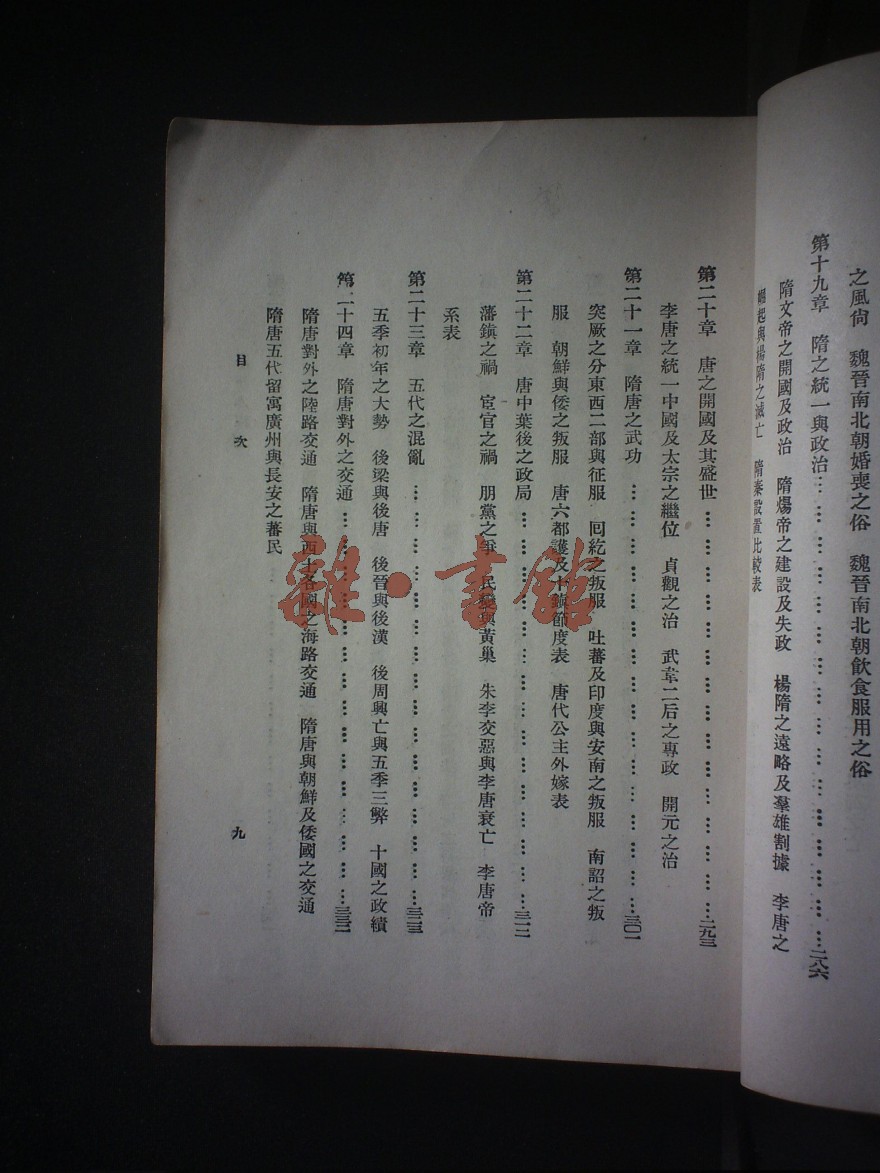 之風尙　魏晉南北朝婚喪之俗　魏晉南北朝飲食服用之俗
第十九章　隋之統一與政治……………………………………二八六
隋文帝之開國及政治　隋煬帝之建設及失政　楊隋之遠略及羣雄割據　李唐之
崛起與楊隋之滅亡　隋秦設置比較表
第二十章　唐之開國及其盛世……………………………………二九三
李唐之統一中國及太宗之繼位　貞觀之治　武韋二后之專政　開元之治
第二十一章　隋唐之武功……………………………………三〇一
突厥之分東西二部與征服　囘紇之叛服　吐蕃及印度與安南之叛服　南詔之叛
服　朝鮮與倭之叛服　唐六都護及十鎭節度表　唐代公主外嫁表
第二十二章　唐中葉後之政局……………………………………三一二
藩鎭之禍　宦官之禍　朋黨之爭　民變與黃巢　朱李交惡與李唐衰亡　李唐帝
系表
第二十三章　五代之混亂……………………………………三二三
五季初年之大勢　後梁與後唐　後晉與後漢　後周興亡與五季三弊　十國之政績
第二十四章　隋唐對外之交通……………………………………三三二
隋唐對外之陸路交通　隋唐與西土各國之海路交通　隋唐與朝鮮及倭國之交通
隋唐五代留寓廣州與長安之蕃民
目次
九
雜·書館